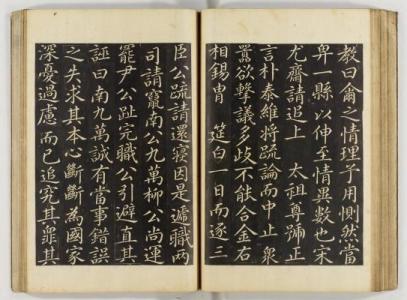 教曰爾之情理予用惻然當
畀一縣以伸至情異數也宋
尤齋請追上 太祖尊號正
言朴泰維將疏論而中止衆
囂欲擊議多歧不能合金右
相錫胄 筵白一日而遂三
臣公疏請還寢因是遞職兩
司請竄南公九萬柳公尚運
罷尹公趾完職公引避直其
誣曰南九萬誠有當事錯誤
之失求其本心斷斷為國家
深憂過慮而已追究其罪其